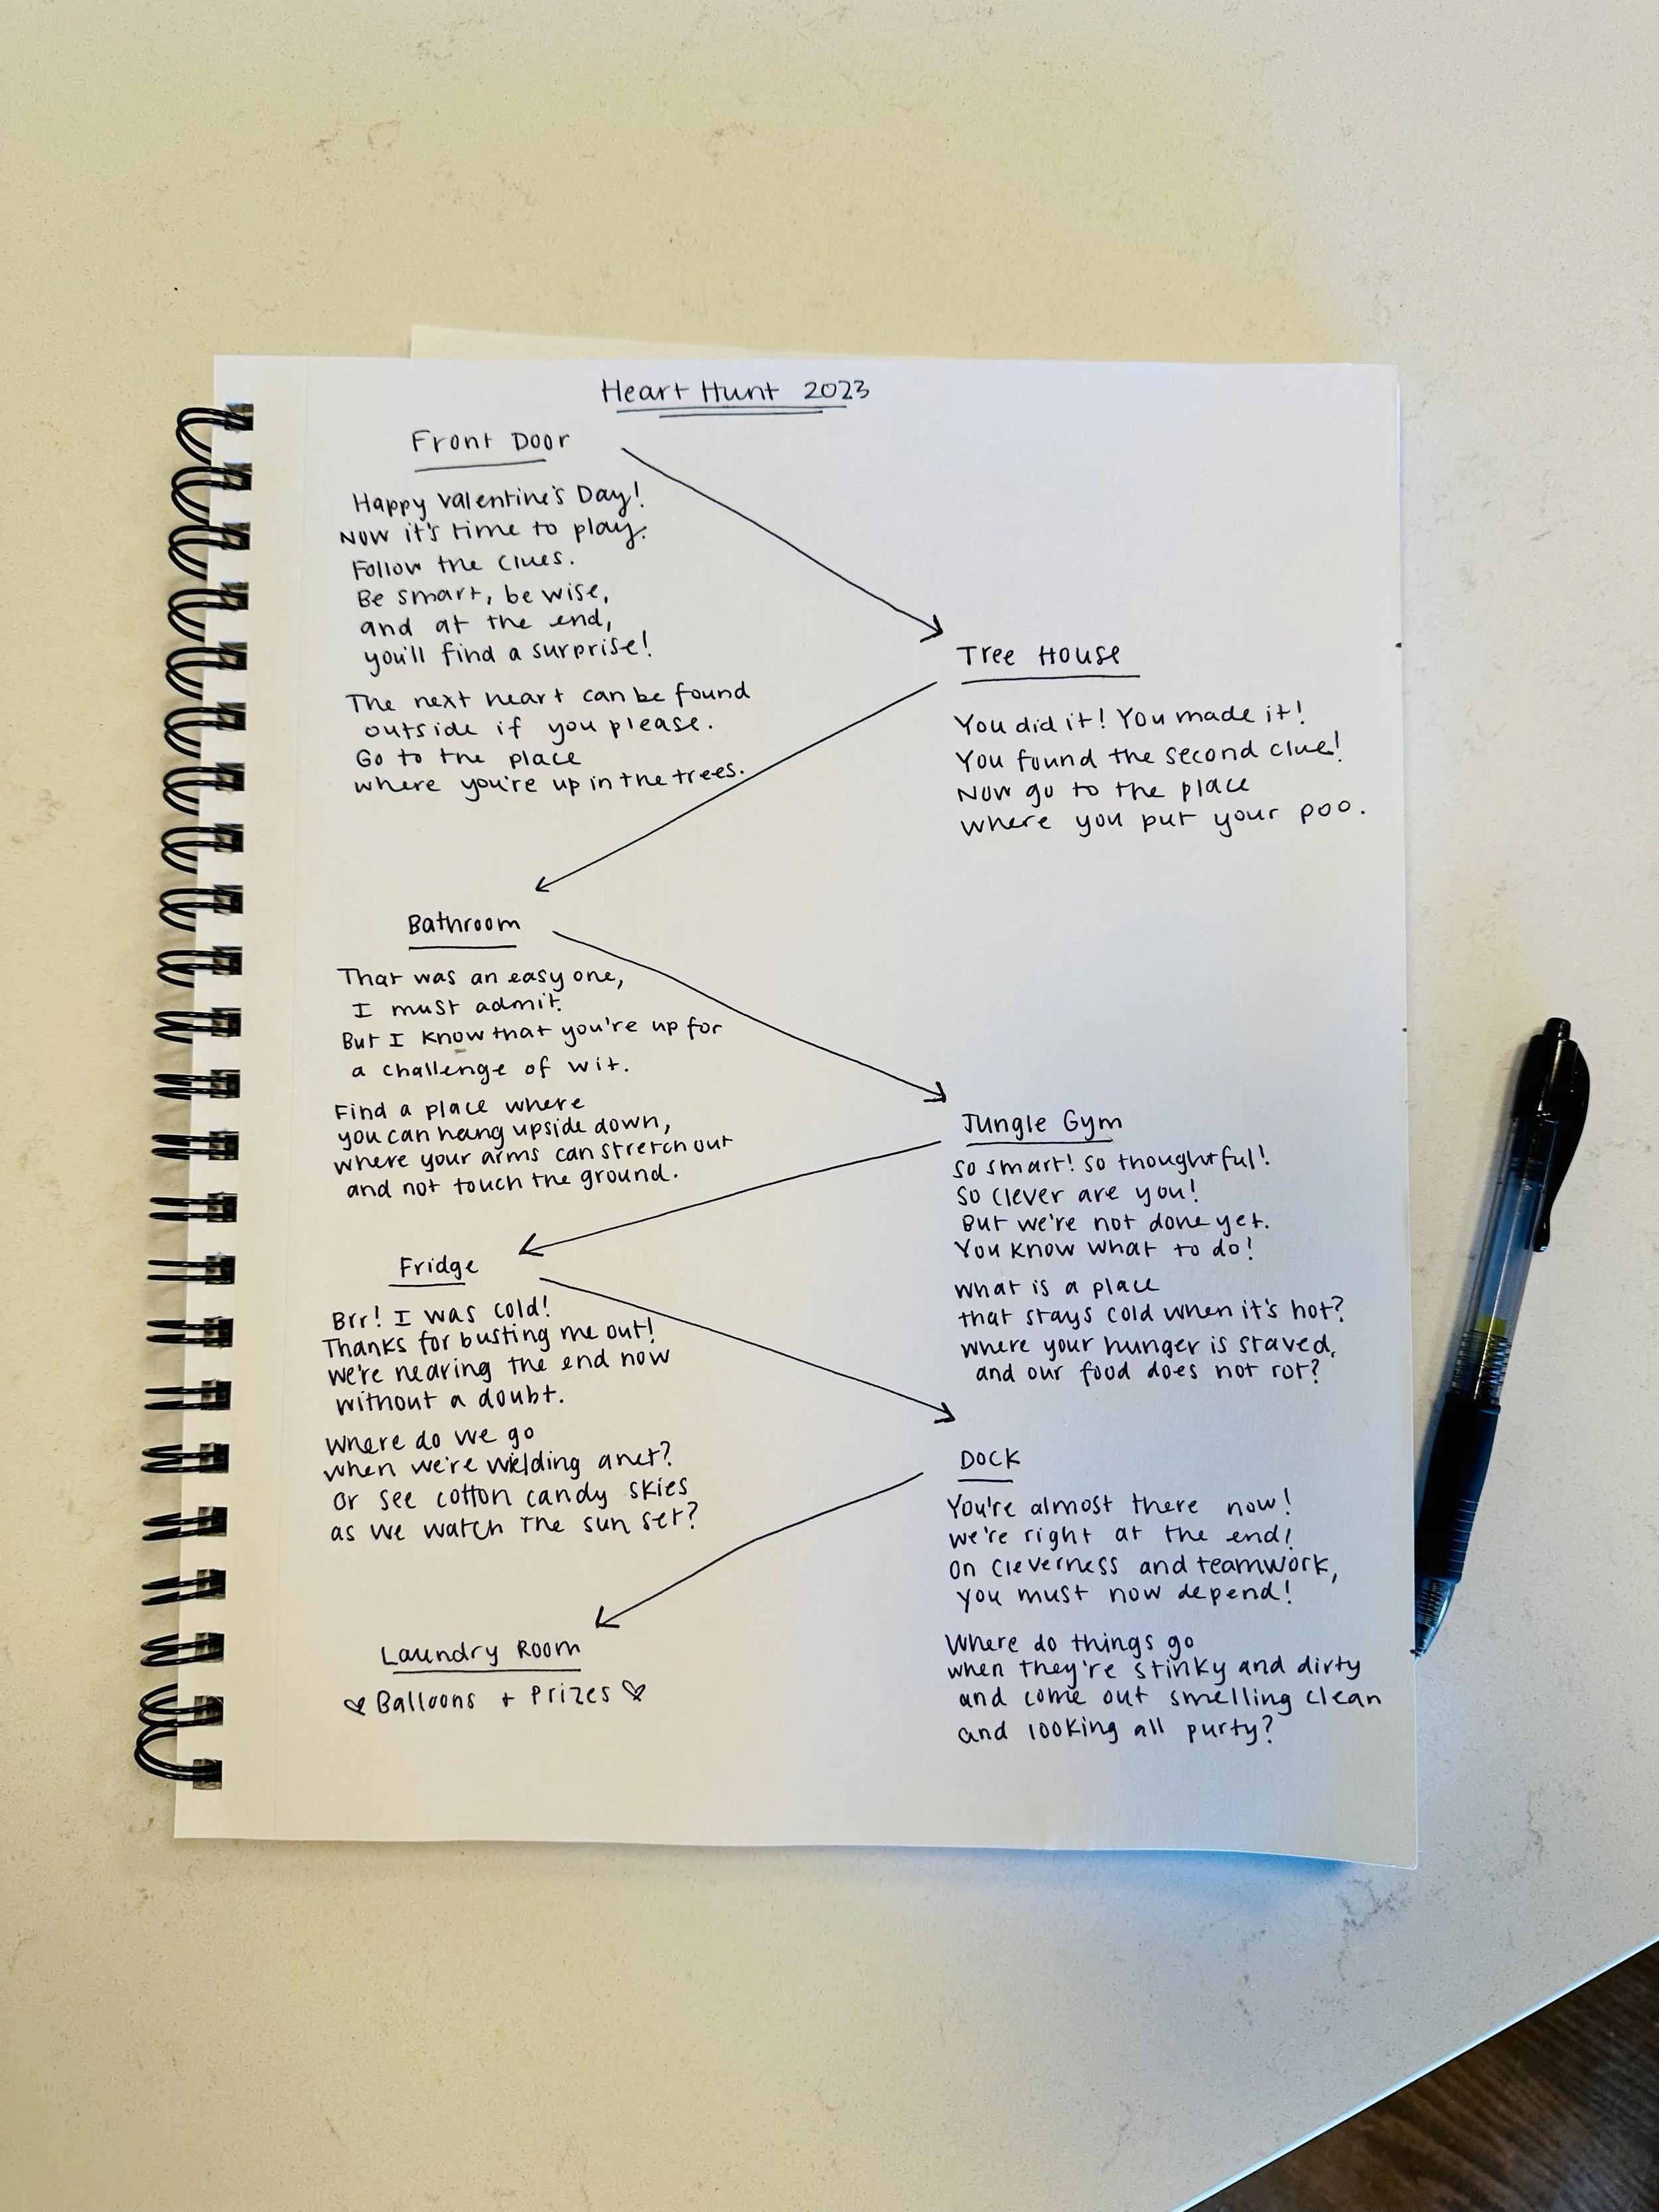 Heart Hunt 2023
Front Door
Happy Valentine's Day!
Now it's time to play.
Follow the clues.
Be smart, be wise,
and at the end,
you'll find a surprise!
The next heart can be found
outside if you please.
Go to the place
where you're up in the trees.
Tree House
You did it! You made it!
You found the second clue!
Now go to the place
where you put your poo.
Bathroom
That was an easy one,
I must admit.
But I know that you're up for
a challenge of wit.
Find a place where
you can hang upside down,
where your arms can stretch out
and not touch the ground.
Jungle Gym
So smart! So thoughtful!
So clever are you!
But we're not done yet.
You know what to do!
What is a place
that stays cold when it's hot?
where your hunger is staved,
and our food does not rot?
Fridge
Brr! I was cold!
Thanks for busting me out!
We're nearing the end now
without a doubt.
Where do we go
when we're wielding a net?
Or see cotton candy skies
as we watch the sun set?
Dock
You're almost there now!
We're right at the end!
On cleverness and teamwork,
you must now depend!
Where do things go
when they're stinky and dirty
and come out smelling clean
and looking all purty?
Laundry Room
♡ Balloons + Prizes ♡